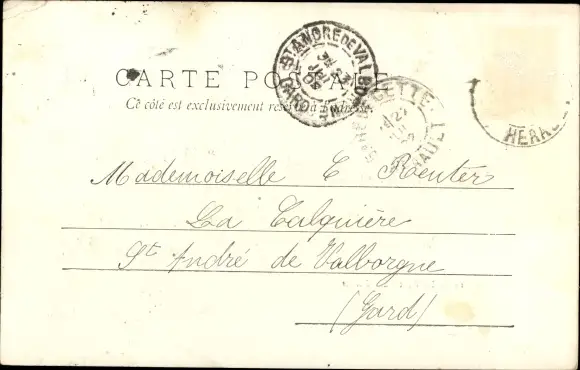 CARTE POSTALE
Ce côté est exclusivement réservé à l'adresse
ST ANDRE DE VALBORGNE
CETTE
HERAULT
HÉR
Mademoiselle E Reuter
La Valquière
St André de Valborgne
(Gard)